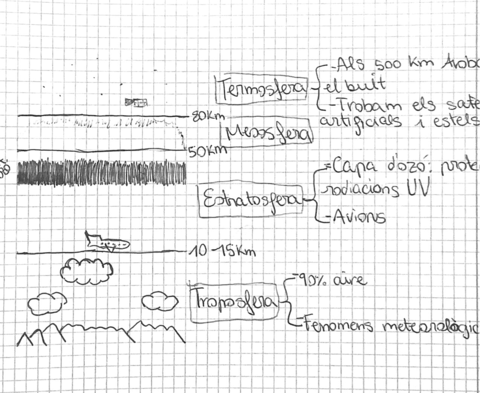 -Als 500 Km troba
Termosfera
el buit
-Trobam els sate
artificials i estels
80Km
Mesosfera
50Km
-Capa d'ozó: prote
radiacions UV
Estratosfera
-Avions
10-15Km
-90% aire
Troposfera
-Fenomens meteorològic